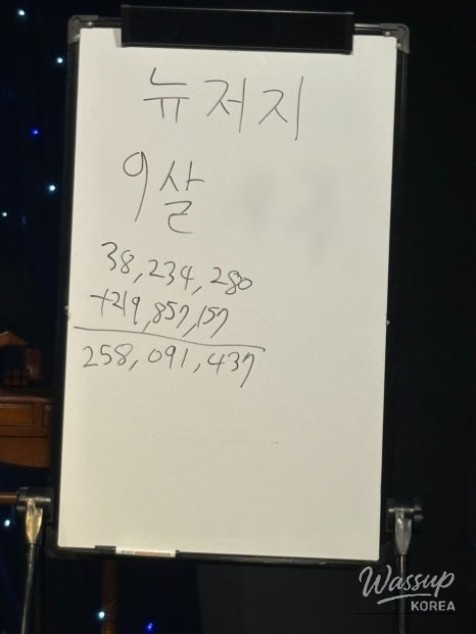 뉴저지
9살
38,234,280
+219,857,157
258,091,437
Wassup
KOREA